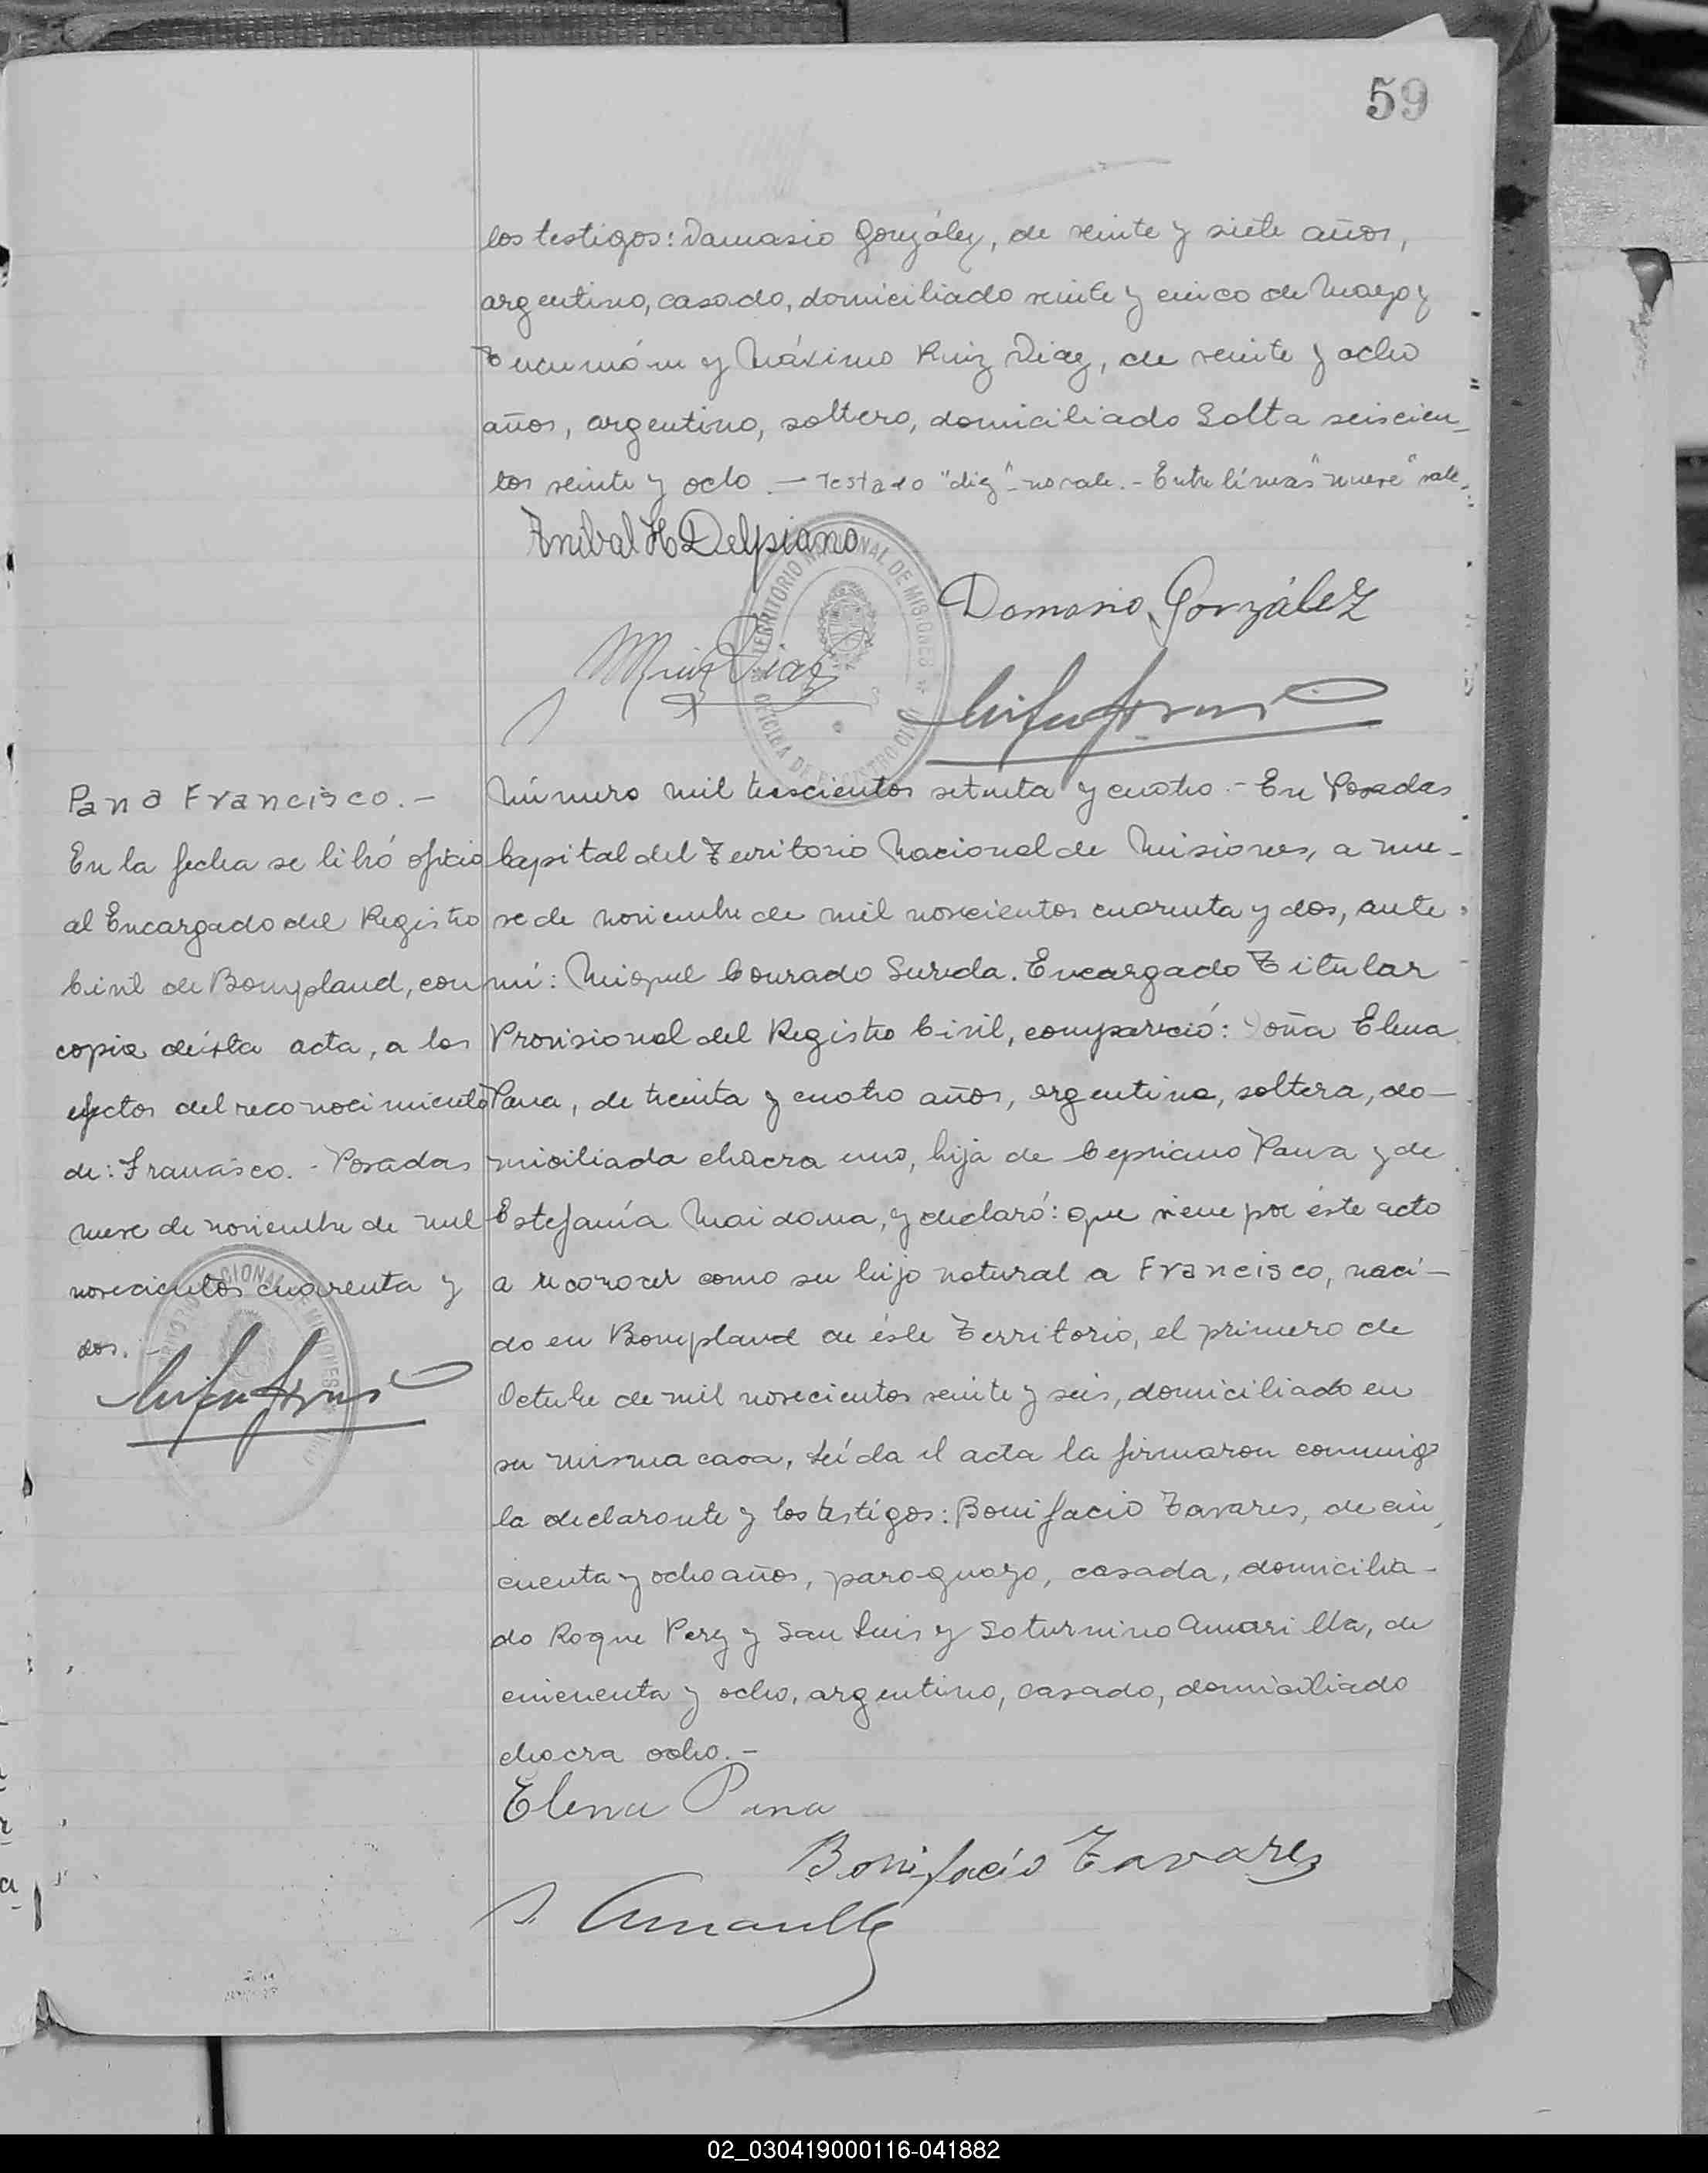 59
los testigos: Damasio González, de veinte y siete años,
argentino, casado, domiciliado veinte y cinco de Mayo y
Tucumán y Máximo Ruiz Diaz, de veinte y ocho
años, argentino, soltero, domiciliado Salta seiscien-
tos veinte y ocho. — Testado "diez" - no vale. - Entre líneas "nueve" vale.
Aníbal H Delpiano
TERRITORIO NACIONAL DE MISIONES
OFICINA DE REGISTRO CIVIL
Damasio González
MRuiz Diaz
Pana Francisco. -
En la fecha se libró oficio
al Encargado del Registro
Civil de Bompland, con
copia de ésta acta, a los
efectos del reconocimiento
de: Francisco. - Posadas
nueve de noviembre de mil
novecientos cuarenta y
dos. -
Número mil trescientos setenta y cuatro - En Posadas
Capital del Territorio Nacional de Misiones, a nue-
ve de noviembre de mil novecientos cuarenta y dos, ante
mí: Miguel Conrado Sureda. Encargado Titular
Provisional del Registro Civil, compareció: Doña Elena
Pana, de treinta y cuatro años, argentina, soltera, do-
miciliada chacra uno, hija de Cepriano Pana y de
Estefanía Maidana, y declaró: que viene por éste acto
a reconocer como su hijo natural a Francisco, naci-
do en Bompland de éste Territorio, el primero de
Octubre de mil novecientos veinte y seis, domiciliado en
su misma casa, Leída el acta la firmaron conmigo
la declarante y los testigos: Bonifacio Tavares, de cin
cuenta y ocho años, paraguayo, casada, domicilia-
do Roque Perez y San Luis y Saturnino Amarilla, de
cincuenta y ocho, argentino, casado, domiciliado
chacra ocho. -
Elena Pana
Bonifacio Tavares
S. Amarilla
02_030419000116-041882